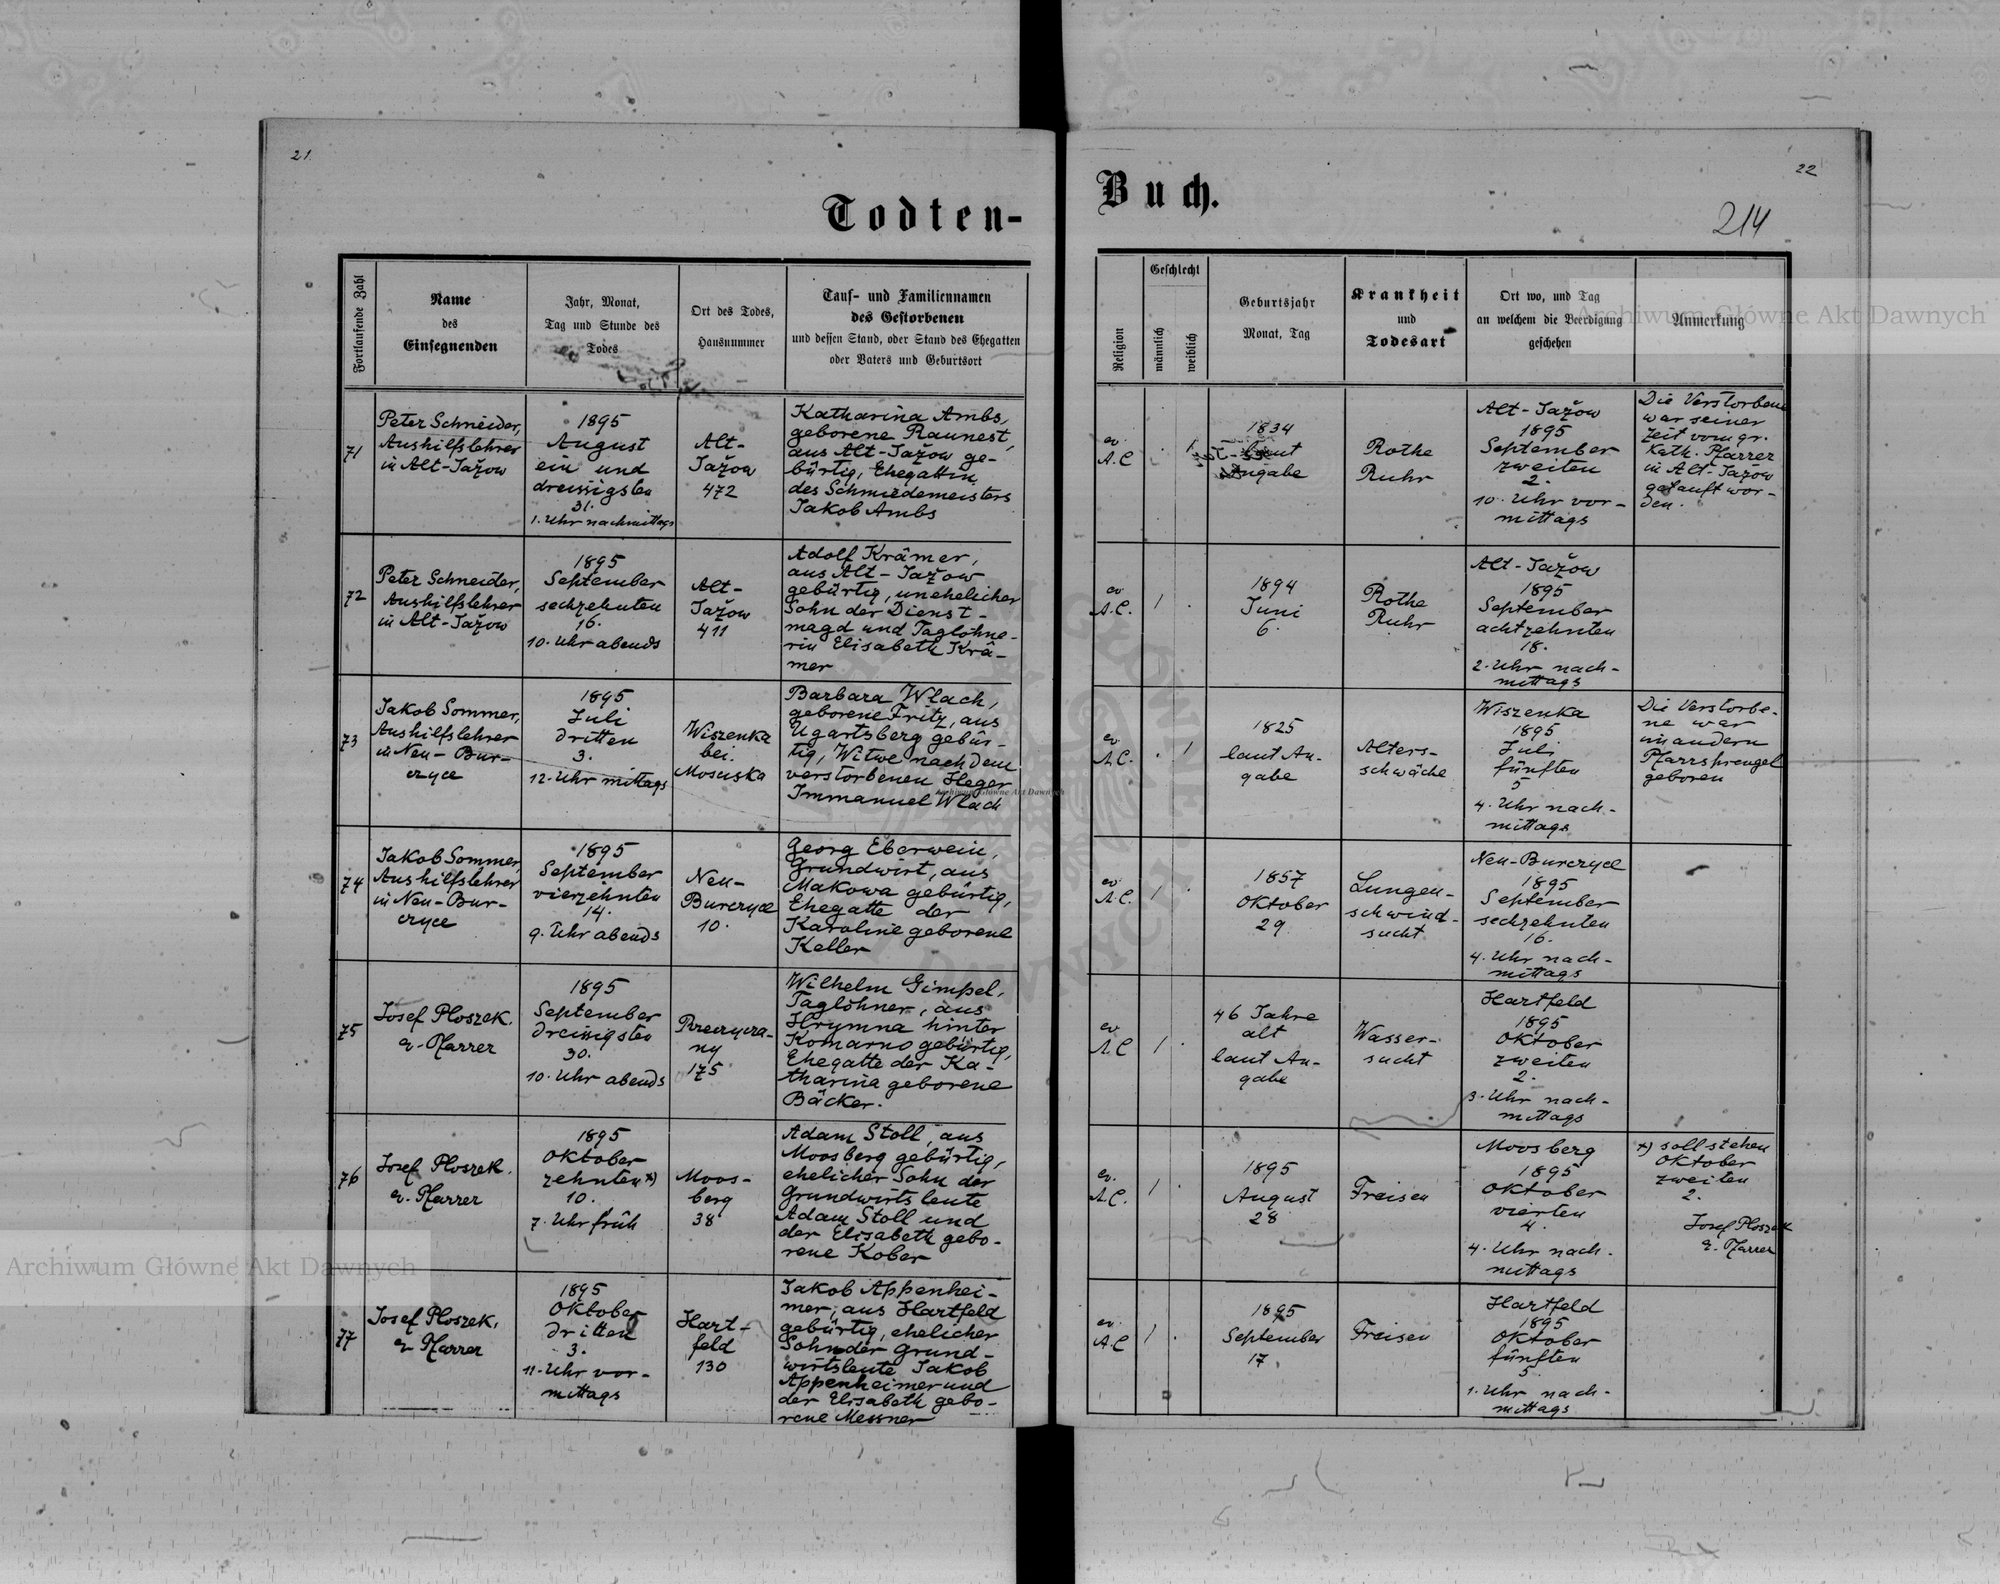 21.
22
Todten-
Buch.
214
Fortlaufende Zahl
Name
des
Einsegnenden
Jahr, Monat,
Tag und Stunde des
Todes
Ort des Todes,
Hausnummer
Tauf- und Familiennamen
des Gestorbenen
und dessen Stand, oder Stand des Ehegatten
oder Vaters und Geburtsort
Religion
Geschlecht
männlich
weiblich
Geburtsjahr
Monat, Tag
Krankheit
und
Todesart
Ort wo, und Tag
an welchem die Beerdigung
geschehen
Anmerkung
71
Peter Schneider,
Aushilfslehrer
in Alt-Jažow
1895
August
ein und
dreissigsten
31.
1. Uhr nachmittags
Alt-
Jažow
472
Katharina Ambs,
geborene Raunest,
aus Alt-Jažow ge-
bürtig, Ehegattin
des Schmiedemeisters
Jakob Ambs
ev.
A.C
. 1
1834
laut
Angabe
Rothe
Ruhr
Alt-Jažow
1895
September
zweiten
2.
10. Uhr vor-
mittags
Die Verstorbene
war seiner
Zeit vom gr.
Kath. Pfarrer
in Alt-Jažow
getauft wor-
den.
72
Peter Schneider,
Aushilfslehrer
in Alt-Jažow
1895
September
sechzehnten
16.
10. Uhr abends
Alt-
Jažow
411
Adolf Krämer,
aus Alt-Jažow
gebürtig, unehelicher
Sohn der Dienst-
magd und Taglöhne-
rin Elisabeth Krä-
mer
ev
A.C.
1 .
1894
Juni
6.
Rothe
Ruhr
Alt-Jažow
1895
September
achtzehnten
18.
2. Uhr nach-
mittags
73
Jakob Sommer,
Aushilfslehrer
in Neu-Bur-
czyce
1895
Juli
dritten
3.
12. Uhr mittags
Wiszenka
bei.
Mosciska
Barbara Wlach,
geborene Fritz, aus
Ugartsberg gebür-
tig, Witwe nach dem
verstorbenen Heger
Immanuel Wlach
ev.
A.C.
. 1
1825
laut An-
gabe
Alters-
schwäche
Wiszenka
1895
Juli
fünften
5
4. Uhr nach-
mittags
Die Verstorbe-
ne war
im andern
Pfarrsprengel
geboren
74
Jakob Sommer,
Aushilfslehrer
in Neu-Bur-
czyce
1895
September
vierzehnten
14.
9. Uhr abends
Neu-
Burczyce
10.
Georg Eberwein,
Grundwirt, aus
Makowa gebürtig,
Ehegatte der
Karoline geborene
Keller
ev.
A.C.
1 .
1857
Oktober
29
Lungen-
schwind-
sucht
Neu-Burczyce
1895
September
sechzehnten
16.
4. Uhr nach-
mittags
75
Josef Ploszek.
ev. Pfarrer
1895
September
dreissigsten
30.
10. Uhr abends
ny
175
Wilhelm Gimpel,
Taglöhner, aus
Hrymna hinter
Komarno gebürtig,
Ehegatte der Ka-
tharina geborene
Bäcker.
ev.
A.C
1 .
46 Jahre
alt
laut An-
gabe
Wasser-
sucht
Hartfeld
1895
Oktober
zweiten
2.
3. Uhr nach-
mittags
76
Josef Ploszek.
ev. Pfarrer
1895
Oktober
zehnten *)
10.
7. Uhr früh
Moos-
berg
38
Adam Stoll, aus
Moosberg gebürtig,
ehelicher Sohn der
Grundwirtsleute
Adam Stoll und
der Elisabeth gebo-
rene Kober
ev.
A.C.
1 .
1895
August
28
Fraisen
Moosberg
1895
Oktober
vierten
4.
4. Uhr nach-
mittags
*) soll stehen
Oktober
zweiten
2.
Josef Ploszek
ev. Pfarrer
77
Josef Ploszek.
ev Pfarrer
1895
Oktober
dritten
3.
11. Uhr vor-
mittags
Hart-
feld
130
Jakob Appenhei-
mer, aus Hartfeld
gebürtig, ehelicher
Sohn der Grund-
wirtsleute Jakob
Appenheimer und
der Elisabeth gebo-
rene Messner
ev.
A.C
1 .
1895
September
17
Fraisen
Hartfeld
1895
Oktober
fünften
5.
1. Uhr nach-
mittags
Archiwum Główne Akt Dawnych
Archiwum Główne Akt Dawnych
Archiwum Główne Akt Dawnych